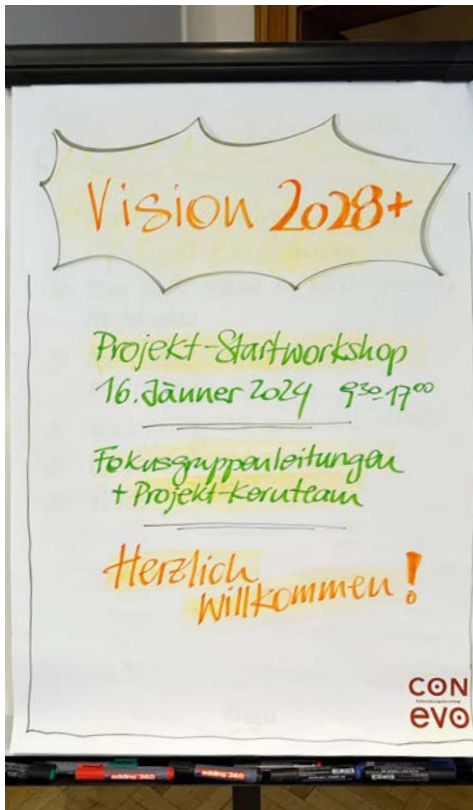 Vision 2028+
Projekt-Startworkshop
16. Jänner 2024 9³⁰-17⁰⁰
Fokusgruppenleitungen
+ Projekt-Kernteam
Herzlich
Willkommen!
CON
evo
edding 360
edding 360